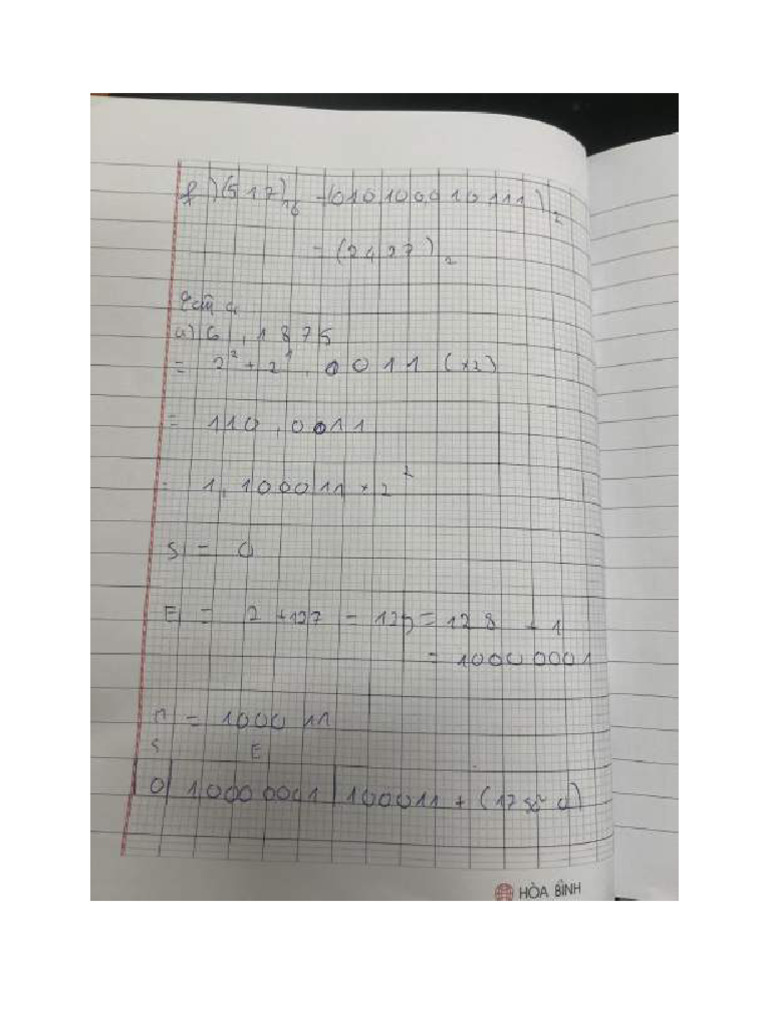 f) (517)₁₆ = (010100010111)₂
= (2427)₂
Câu 4
a) 6,1875
= 2² + 2¹, 0011 (x2)
= 110,0011
= 1,100011 x 2²
S = 0
E = 2 + 127 = 129 = 128 + 1
= 10000001
M = 100011
S E
0 | 10000001 | 100011 + (17 số 0)
HÒA BÌNH